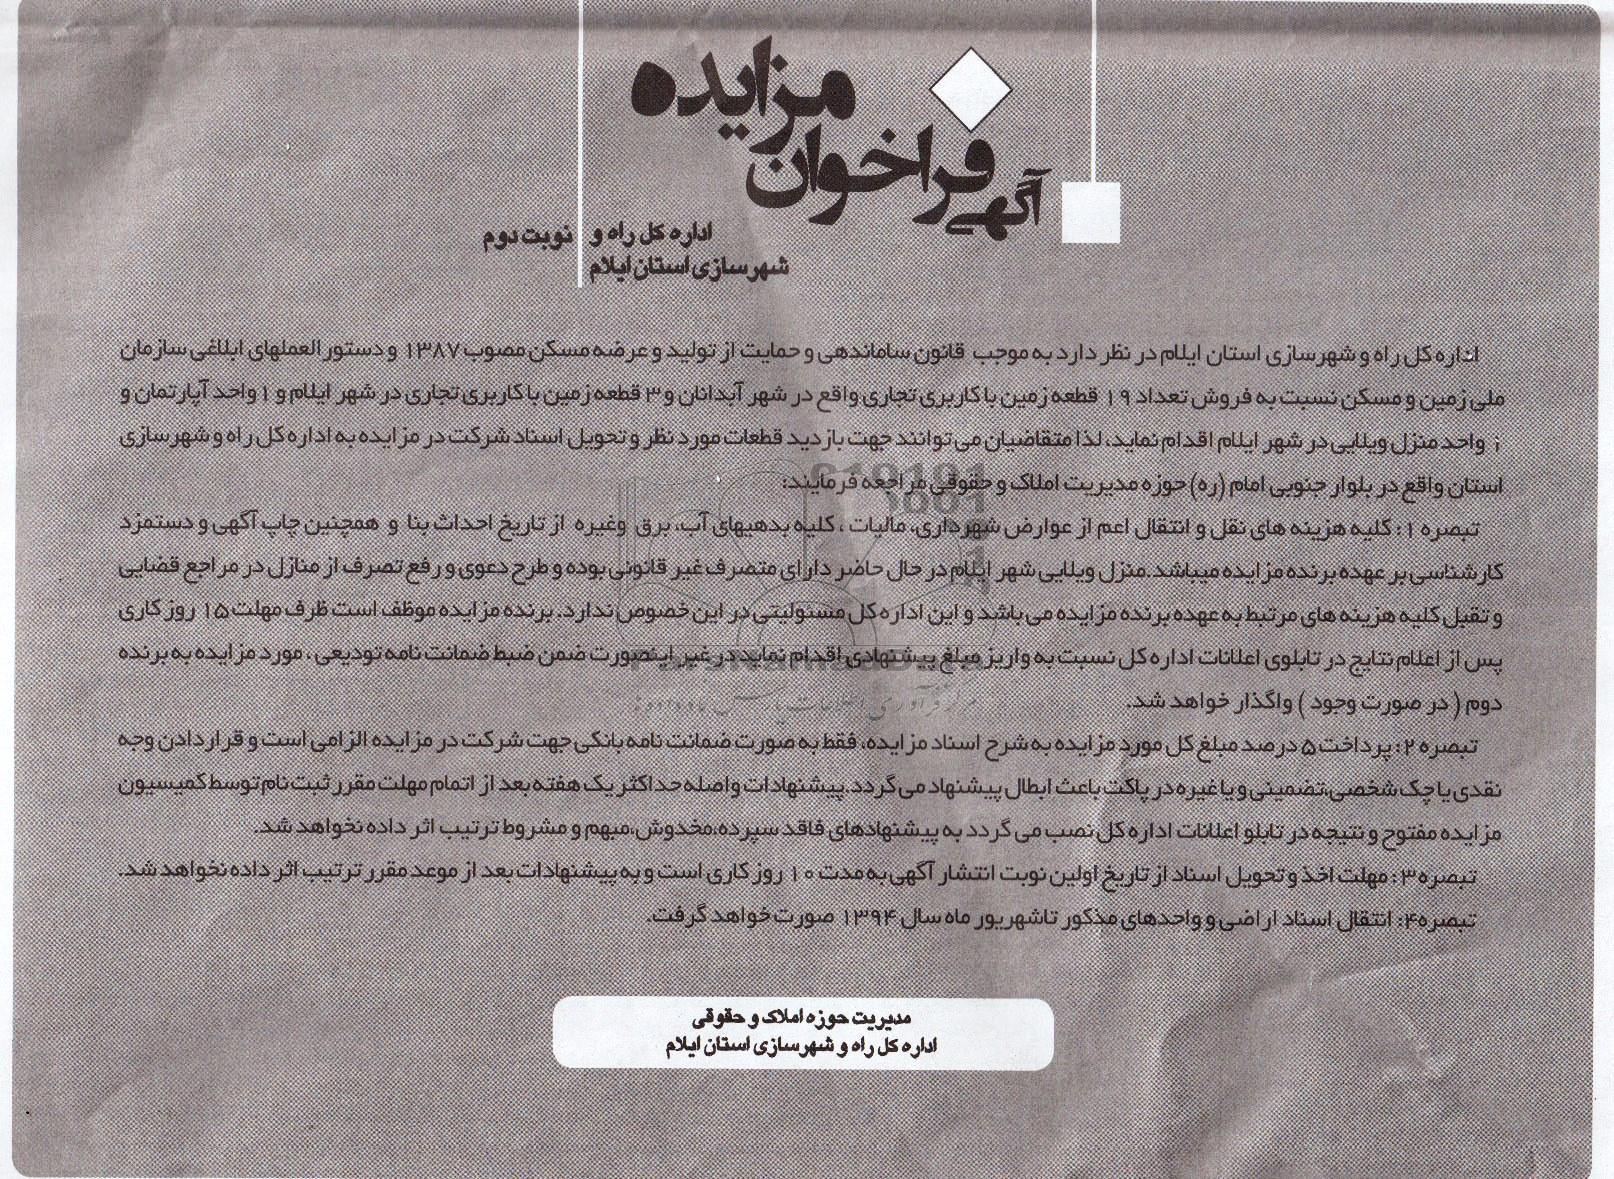 آگهی فراخوان مزایده
اداره کل راه و
شهرسازی استان ایلام
نوبت دوم
اداره کل راه و شهرسازی استان ایلام در نظر دارد به موجب قانون ساماندهی و حمایت از تولید و عرضه مسکن مصوب ۱۳۸۷ و دستورالعملهای ابلاغی سازمان
ملی زمین و مسکن نسبت به فروش تعداد ۱۹ قطعه زمین با کاربری تجاری واقع در شهر آبدانان و ۳ قطعه زمین با کاربری تجاری در شهر ایلام و ۱ واحد آپارتمان و
۱ واحد منزل ویلایی در شهر ایلام اقدام نماید، لذا متقاضیان می توانند جهت بازدید قطعات مورد نظر و تحویل اسناد شرکت در مزایده به اداره کل راه و شهرسازی
استان واقع در بلوار جنوبی امام (ره) حوزه مدیریت املاک و حقوقی مراجعه فرمایند:
تبصره ۱: کلیه هزینه های نقل و انتقال اعم از عوارض شهرداری، مالیات ، کلیه بدهیهای آب، برق وغیره از تاریخ احداث بنا و همچنین چاپ آگهی و دستمزد
کارشناسی بر عهده برنده مزایده میباشد.منزل ویلایی شهر ایلام در حال حاضر دارای متصرف غیر قانونی بوده و طرح دعوی و رفع تصرف از منازل در مراجع قضایی
و تقبل کلیه هزینه های مرتبط به عهده برنده مزایده می باشد و این اداره کل مسئولیتی در این خصوص ندارد. برنده مزایده موظف است ظرف مهلت ۱۵ روز کاری
پس از اعلام نتایج در تابلوی اعلانات اداره کل نسبت به واریز مبلغ پیشنهادی اقدام نماید در غیر اینصورت ضمن ضبط ضمانت نامه تودیعی ، مورد مزایده به برنده
دوم ( در صورت وجود ) واگذار خواهد شد.
تبصره ۲: پرداخت ۵ درصد مبلغ کل مورد مزایده به شرح اسناد مزایده، فقط به صورت ضمانت نامه بانکی جهت شرکت در مزایده الزامی است و قراردادن وجه
نقدی یا چک شخصی،تضمینی و یا غیره در پاکت باعث ابطال پیشنهاد می گردد.پیشنهادات واصله حداکثر یک هفته بعد از اتمام مهلت مقرر ثبت نام توسط کمیسیون
مزایده مفتوح و نتیجه در تابلو اعلانات اداره کل نصب می گردد به پیشنهادهای فاقد سپرده،مخدوش،مبهم و مشروط ترتیب اثر داده نخواهد شد.
تبصره ۳: مهلت اخذ و تحویل اسناد از تاریخ اولین نوبت انتشار آگهی به مدت ۱۰ روز کاری است و به پیشنهادات بعد از موعد مقرر ترتیب اثر داده نخواهد شد.
تبصره ۴: انتقال اسناد اراضی و واحدهای مذکور تا شهریور ماه سال ۱۳۹۴ صورت خواهد گرفت.
مدیریت حوزه املاک و حقوقی
اداره کل راه و شهرسازی استان ایلام